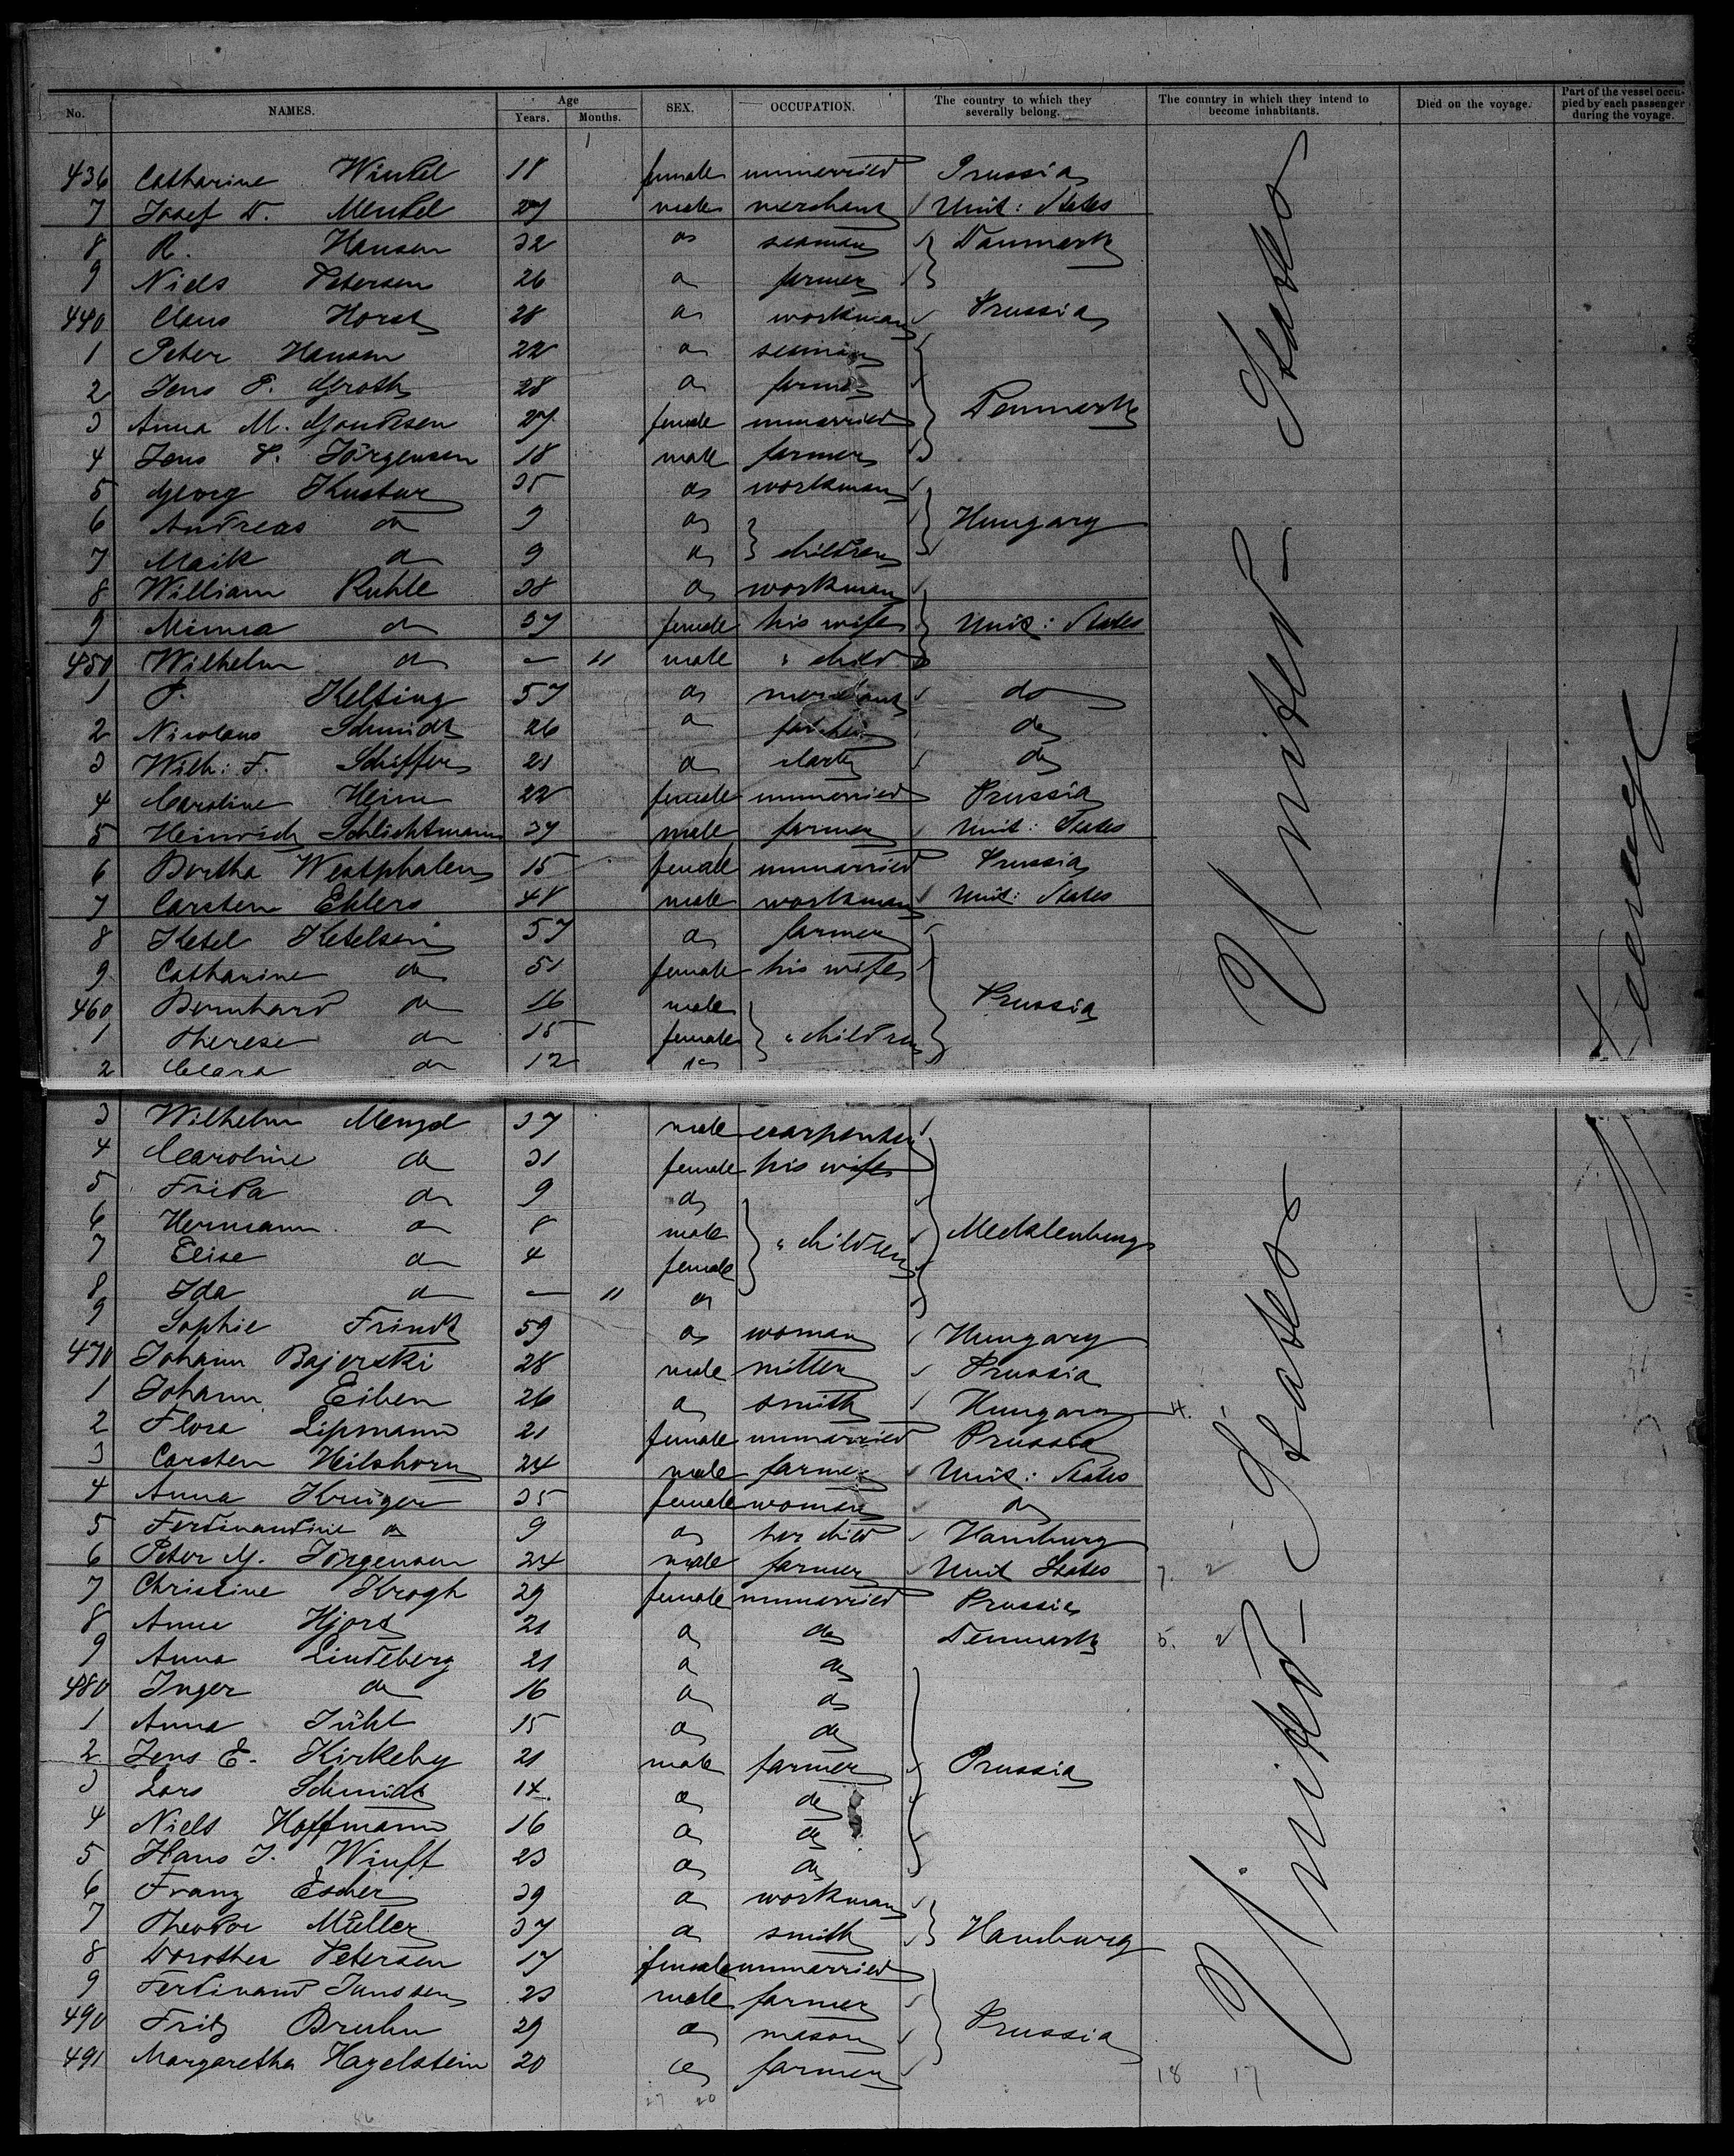 No. NAMES. Age Years. Months. SEX. OCCUPATION. The country to which they severally belong. The country in which they intend to become inhabitants. Died on the voyage. Part of the vessel occupied by each passenger during the voyage.
436 Catharine Winkel 18 female unmarried Prussia
7 Josef D. Menkel 27 male merchant Unit: States
8 R. Hansen 32 do seaman Danmark
9 Niels Petersen 26 do farmer
440 Claus Horst 28 do workman Prussia
1 Peter Hansen 22 do seaman
2 Jens P. Groth 28 do farmer
3 Anna M. 27 female unmarried Denmark
4 Jens P. Jörgensen 18 male farmer
5 Georg Kustur 35 do workman
6 Andreas do 9 do Hungary
7 Maik do 9 do children
8 William Ruhle 38 do workman
9 Minna do 37 female his wife Unit: States
450 Wilhelm do — 11 male " child
1 P. Kelting 57 do merchant do
2 Nicolaus Schmidt 26 do do
3 Wilh: F. Schiffer 21 do clark do
4 Caroline Heim 22 female unmarried Prussia
5 Heinrich Schlichtmann 37 male farmer Unit: States
6 Bertha Westphalen 15 female unmarried Prussia
7 Carsten Ehlers 48 male workman Unit: States
8 Ketel Ketelsen 57 do farmer
9 Catharine do 51 female his wife
460 Bernhard do 16 male Prussia
1 Therese do 15 female " children
2 Clara do 12 do
3 Wilhelm Menzel 37 male carpenter
4 Caroline do 31 female his wife
5 Frida do 9 do
6 Hermann do 8 male " children Mecklenburg
7 Elise do 4 female
8 Ida do — 11 do
9 Sophie Frindt 59 do woman Hungary
470 Johann Bajerski 28 male miller Prussia
1 Johann Eiben 26 do smith Hungary 4. 1
2 Flora Lipmann 21 female unmarried Prussia
3 Carsten Hilshorn 24 male farmer Unit: States
4 Anna Krüger 35 female woman do
5 Ferdinandine do 9 do her child Hamburg
6 Peter M. Jörgensen 24 male farmer Unit States 7. 2
7 Christine Krogh 29 female unmarried Prussia
8 Anne Hjort 21 do do Denmark 5. 2
9 Anna Lindeberg 21 do do
480 Inger do 16 do do
1 Anna Jühl 15 do do
2 Jens E. Kirkeby 21 male farmer Prussia
3 Lars Schmidt 14 do do
4 Niels Hoffmann 16 do do
5 Hans J. Winff 23 do do
6 Franz Escher 39 do workman
7 Theodor Müller 37 do smith Hamburg
8 Dorothea Petersen 17 female unmarried
9 Ferdinand Janssen 23 male farmer
490 Fritz Bruhn 29 do mason Prussia
491 Margaretha Hagelstein 20 do farmer
18 17
27 20
United States
United States
Steerage